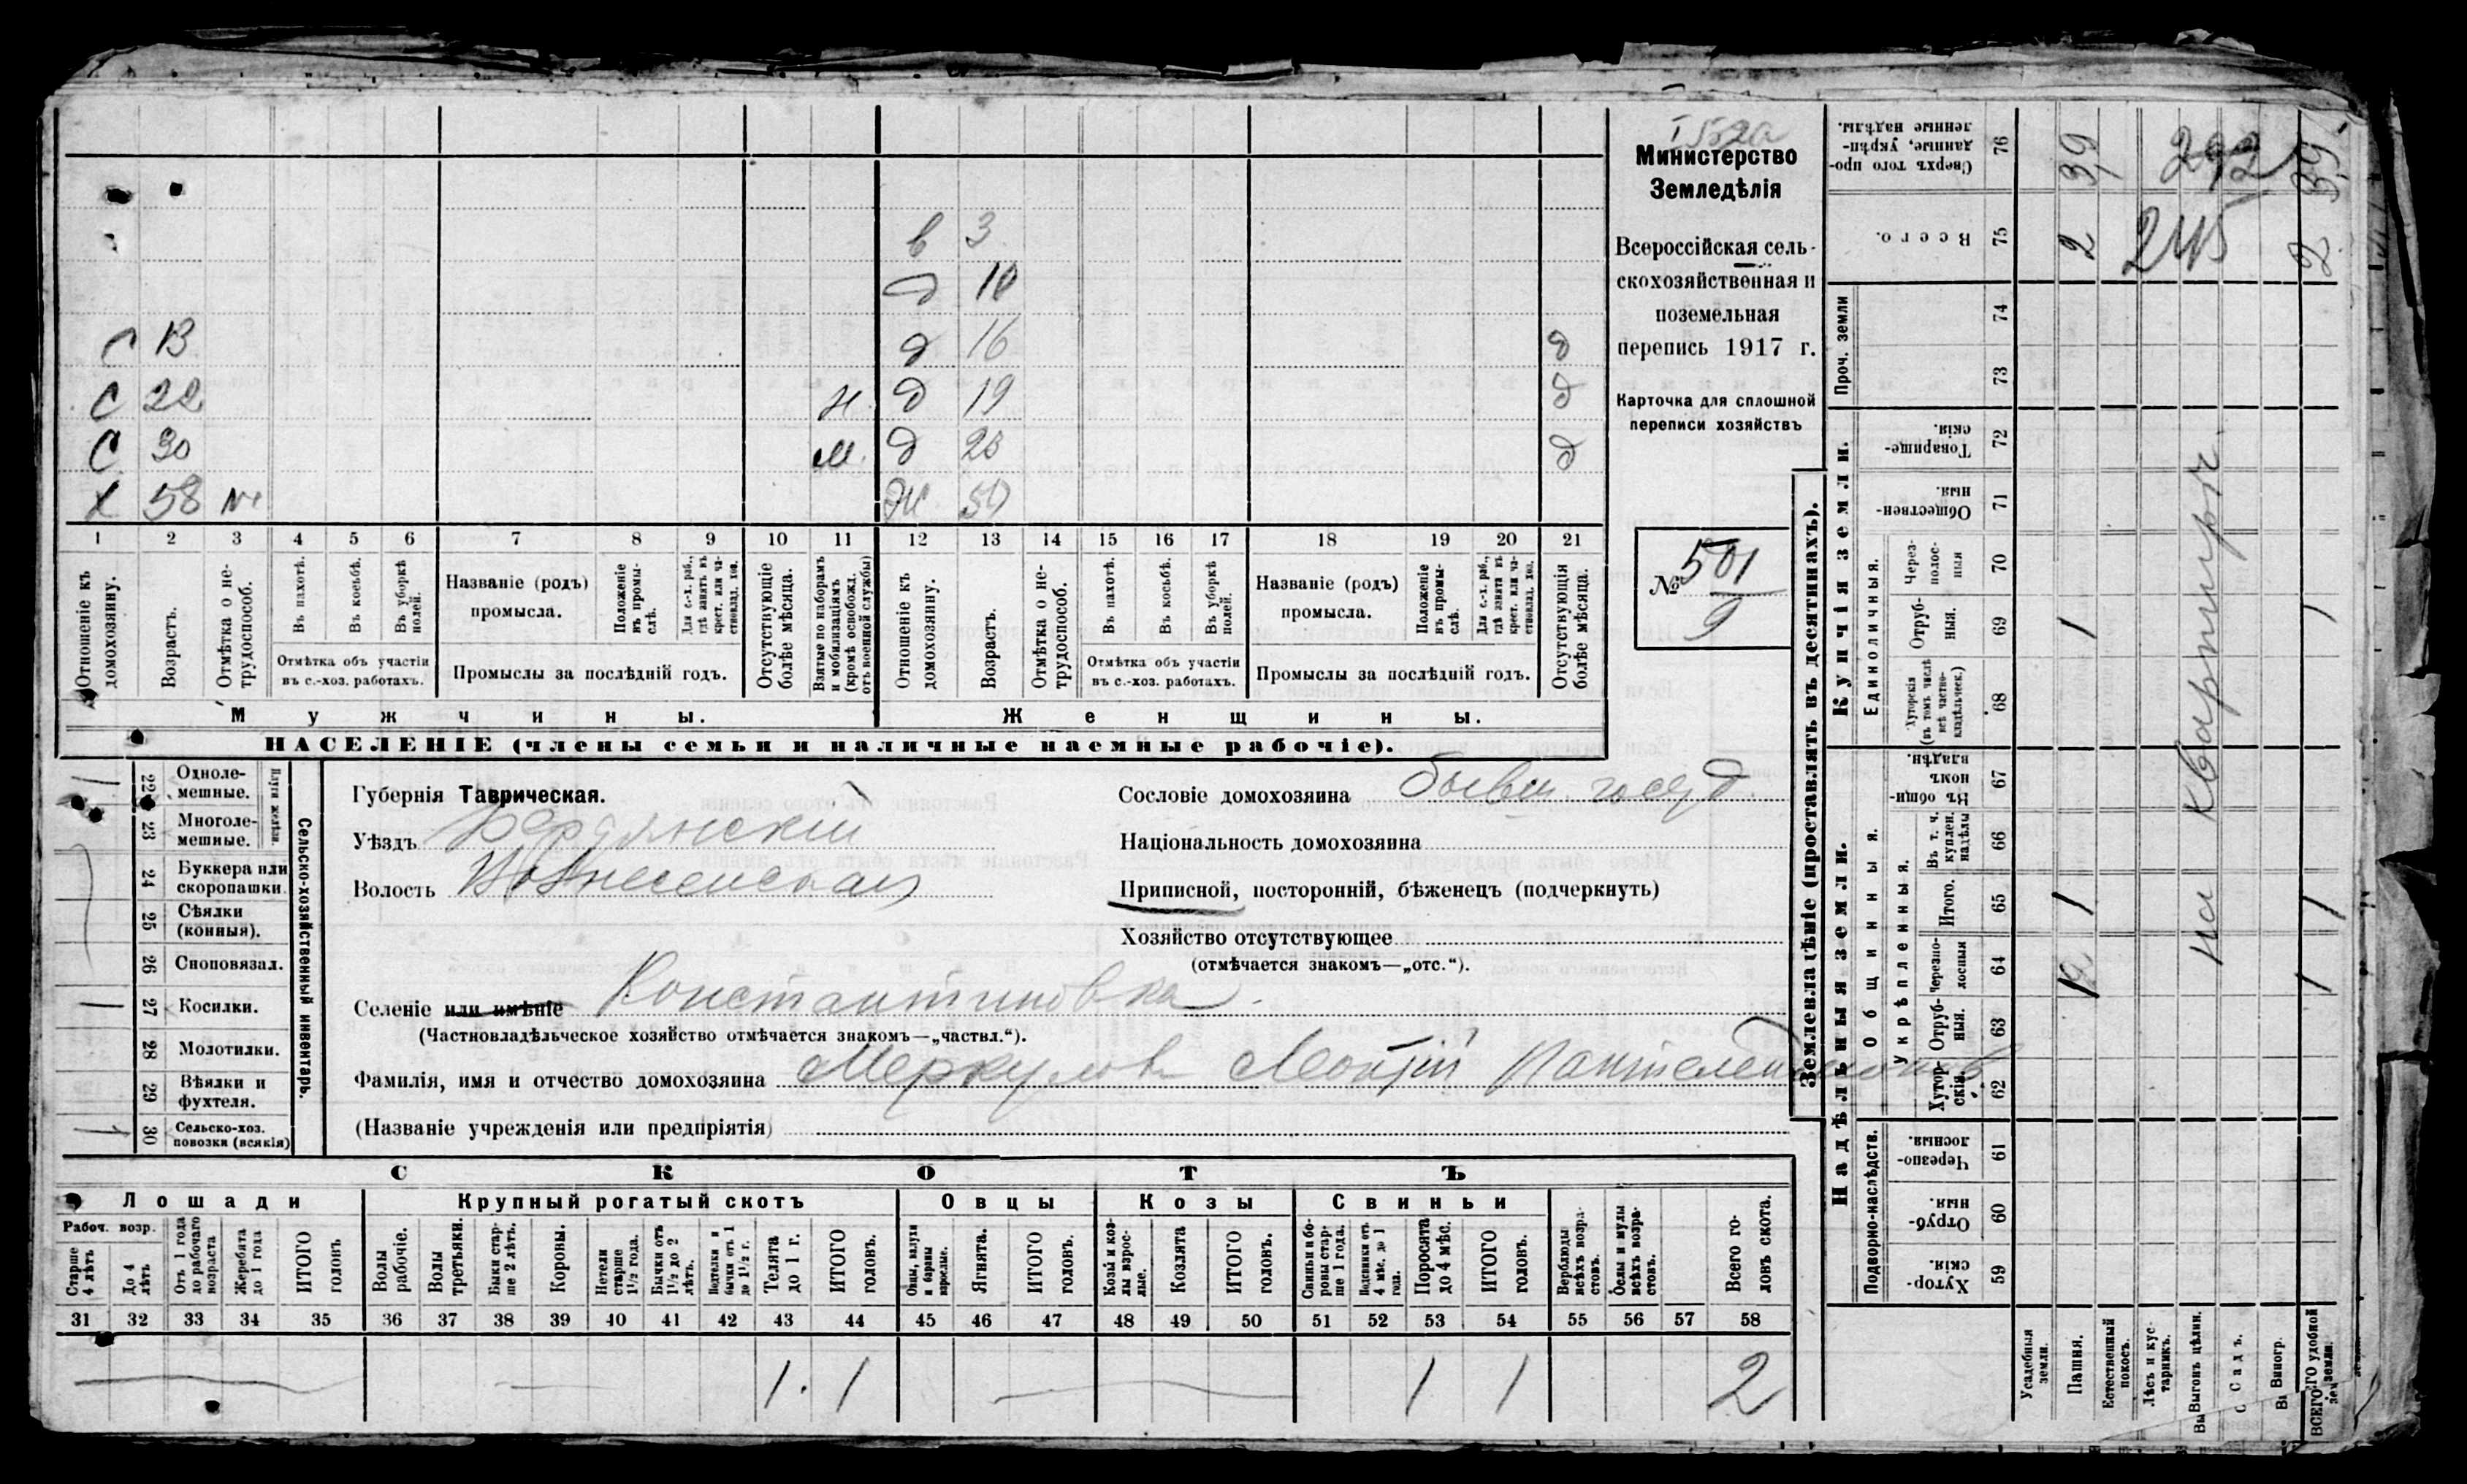 Министерство
Земледѣлія
Всероссійская сель-
скохозяйственная и
поземельная
перепись 1917 г.
Карточка для сплошной
переписи хозяйствъ
№ 501
9
в 3
д 10
С 13 д 16 д
С 22 н. д 19 д
С 30 м. д д
х 58 ж.
1 2 3 4 5 6 7 8 9 10 11 12 13 14 15 16 17 18 19 20 21
Отношеніе къ домохозяину.
Возрастъ.
Отмѣтка о не-трудоспособ.
Въ пахотѣ.
Въ косьбѣ.
Въ уборкѣ полей.
Отмѣтка объ участіи
въ с.-хоз. работахъ.
Названіе (родъ)
промысла.
Положеніе въ промы-слѣ.
Для с.-х. раб., гдѣ занятъ въ крест. или ча-стновлад. хоз.
Промыслы за послѣдній годъ.
Отсутствующіе болѣе мѣсяца.
Взятые по наборамъ и мобилизаціямъ (кромѣ освобожд. отъ военной службы)
Отношеніе къ домохозяину.
Возрастъ.
Отмѣтка о не-трудоспособ.
Въ пахотѣ.
Въ косьбѣ.
Въ уборкѣ полей.
Отмѣтка объ участіи
въ с.-хоз. работахъ.
Названіе (родъ)
промысла.
Положеніе въ промы-слѣ.
Для с.-х. раб., гдѣ занятъ въ крест. или ча-стновлад. хоз.
Промыслы за послѣдній годъ.
Отсутствующія болѣе мѣсяца.
Мужчины.
Женщины.
НАСЕЛЕНІЕ (члены семьи и наличные наемные рабочіе).
Губернія Таврическая.
Уѣздъ Бердянскій
Волость Вознесенская
Сословіе домохозяина бывш. госуд.
Національность домохозяина
Приписной, посторонній, бѣженецъ (подчеркнуть)
Хозяйство отсутствующее
(отмѣчается знакомъ—„отс.“).
Селеніе или имѣніе Константиновка.
(Частновладѣльческое хозяйство отмѣчается знакомъ—„частвл.“).
Фамилія, имя и отчество домохозяина Меркулов
(Названіе учрежденія или предпріятія)
Сельско-хозяйственный инвентарь.
Плуги желѣзн.
22 Однолемешные.
23 Многолемешные.
24 Буккера или скоропашки.
25 Сѣялки (конныя).
26 Сноповязал.
27 Косилки.
28 Молотилки.
29 Вѣялки и фухтеля.
30 Сельско-хоз. повозки (всякія)
СКОТЪ
Лошади
Крупный рогатый скотъ
Овцы
Козы
Свиньи
Рабоч. возр.
Старше 4 лѣтъ
До 4 лѣтъ
Отъ 1 года до рабочаго возраста
Жеребята до 1 года
ИТОГО головъ
Волы рабочіе.
Волы третьяки.
Быки стар-ше 2 лѣтъ.
Коровы.
Нетели старше 1½ года.
Бычки отъ 1½ до 2 лѣтъ.
Подтелки и бычки отъ 1 до 1½ г.
Телята до 1 г.
ИТОГО головъ.
Овцы, валухи и бараны взрослые.
Ягнята.
ИТОГО головъ.
Козы и коз-лы взрос-лые.
Козлята
ИТОГО головъ.
Свиньи и бо-ровы стар-ше 1 года.
Подсвинки отъ 4 мѣс. до 1 года.
Поросята до 4 мѣс.
ИТОГО головъ.
Верблюды всѣхъ возра-стовъ.
Ослы и мулы всѣхъ возра-стовъ.
Всего го-ловъ скота.
31 32 33 34 35 36 37 38 39 40 41 42 43 44 45 46 47 48 49 50 51 52 53 54 55 56 57 58
1. 1 1 1 2
Землевладѣніе (проставлять въ десятинахъ).
Надѣльныя земли.
Купчія земли.
Проч. земли
Подворно-наслѣдств.
Общинныя.
Укрѣпленныя.
Единоличныя.
59 Хутор-скія.
60 Отруб-ныя.
61 Черезпо-лосныя.
62 Хутор-скія.
63 Отруб-ныя.
64 Черезпо-лосныя
65 Итого.
66 Въ т. ч. куплен. надѣлы
67 Въ общин-номъ владѣн.
68 Хуторскія (въ томъ числѣ всѣ частно-владѣльческ.)
69 Отруб-ныя.
70 Через-полос-ныя
71 Обществен-ныя.
72 Товарище-скія.
73
74
75 Всего.
76 Сверхъ того про-данные, укрѣп-ленные надѣлы.
Усадебныя земли.
Пашня.
Естественный покосъ.
Лѣсъ и кус-тарникъ.
Выгонъ цѣлин.
Садъ.
Виногр.
ВСЕГО удобной земли.
2 39
245
292
на квартире.
2 39